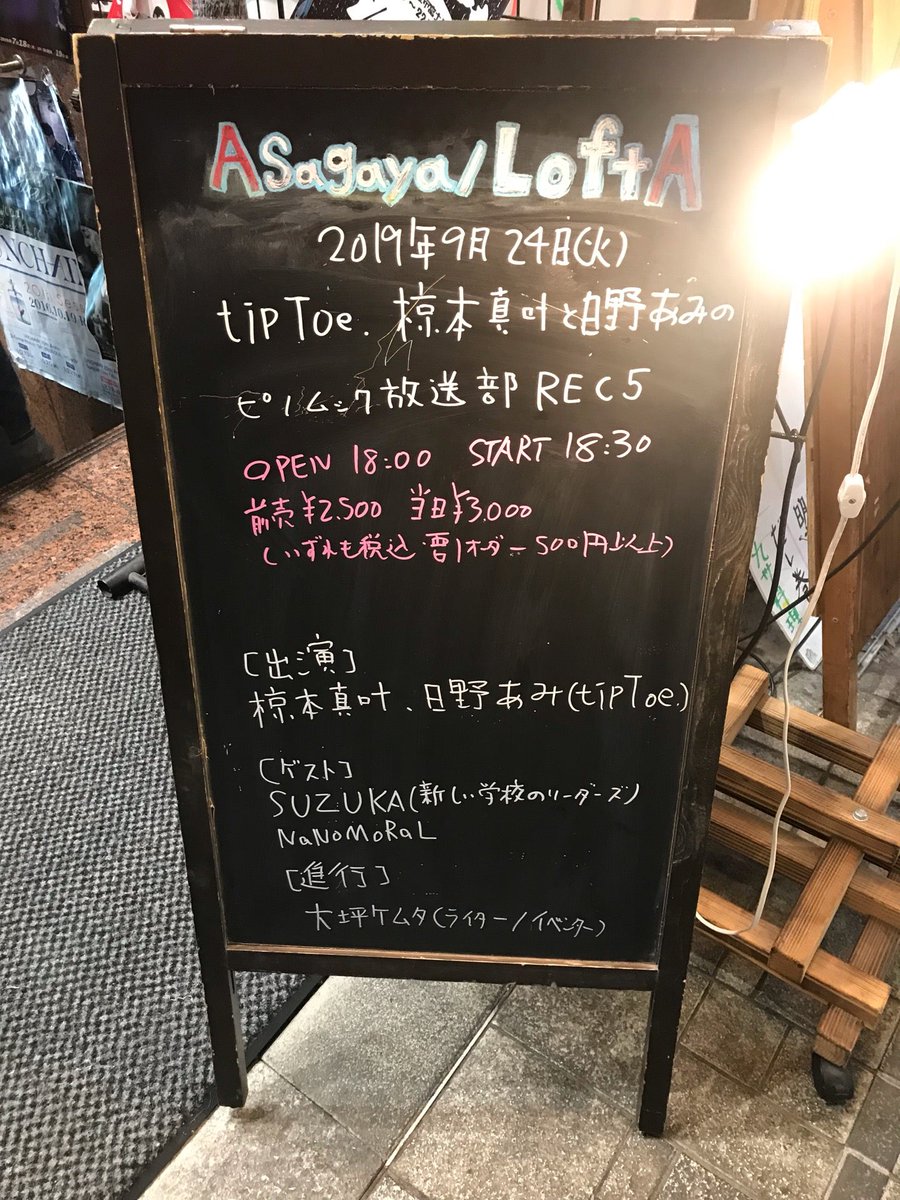 Asagaya/LoftA
2019年9月24日(火)
tipToe. 椋本真叶と日野あみの
ピノムック放送部 REC5
OPEN 18:00 START 18:30
前売¥2.500 当日¥3.000
(いずれも税込 要1オーダー500円以上)
[出演]
椋本真叶、日野あみ(tipToe.)
[ゲスト]
SUZUKA(新しい学校のリーダーズ)
NaNoMoRaL
[進行]
大坪ケムタ(ライター/イベンター)